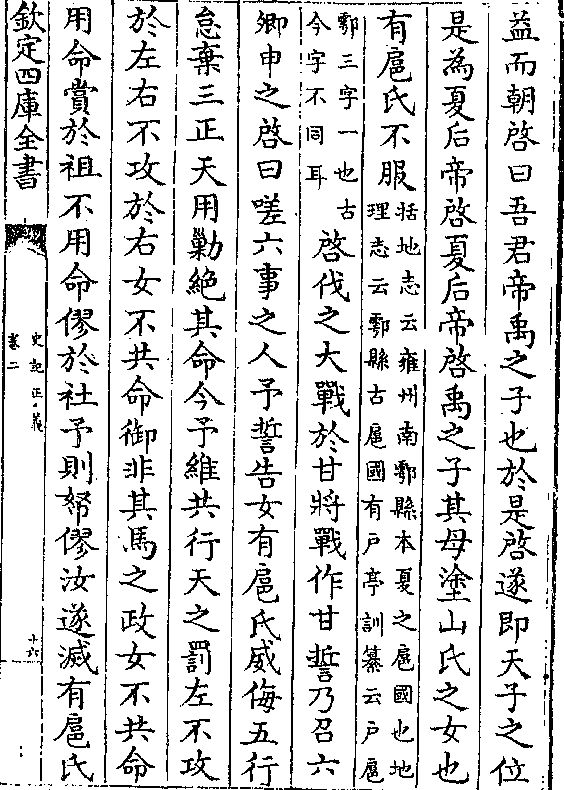 益而朝啓曰吾君帝禹之子也於是啓遂即天子之位
是為夏后帝啓夏后帝啓禹之子其母塗山氏之女也
有扈氏不服
括地志云雍州南鄠縣本夏之扈國也地
理志云鄠縣古扈國有户亭訓纂云户扈
鄠三字一也古
今字不同耳
啓伐之大戰於甘將戰作甘誓乃召六
卿申之啓曰嗟六事之人予誓告女有扈氏威侮五行
怠棄三正天用勦絶其命今予維共行天之罰左不攻
於左右不攻於右女不共命御非其馬之政女不共命
用命賞於祖不用命僇於社予則帑僇汝遂滅有扈氏
欽定四庫全書
史記正義
卷二
十六